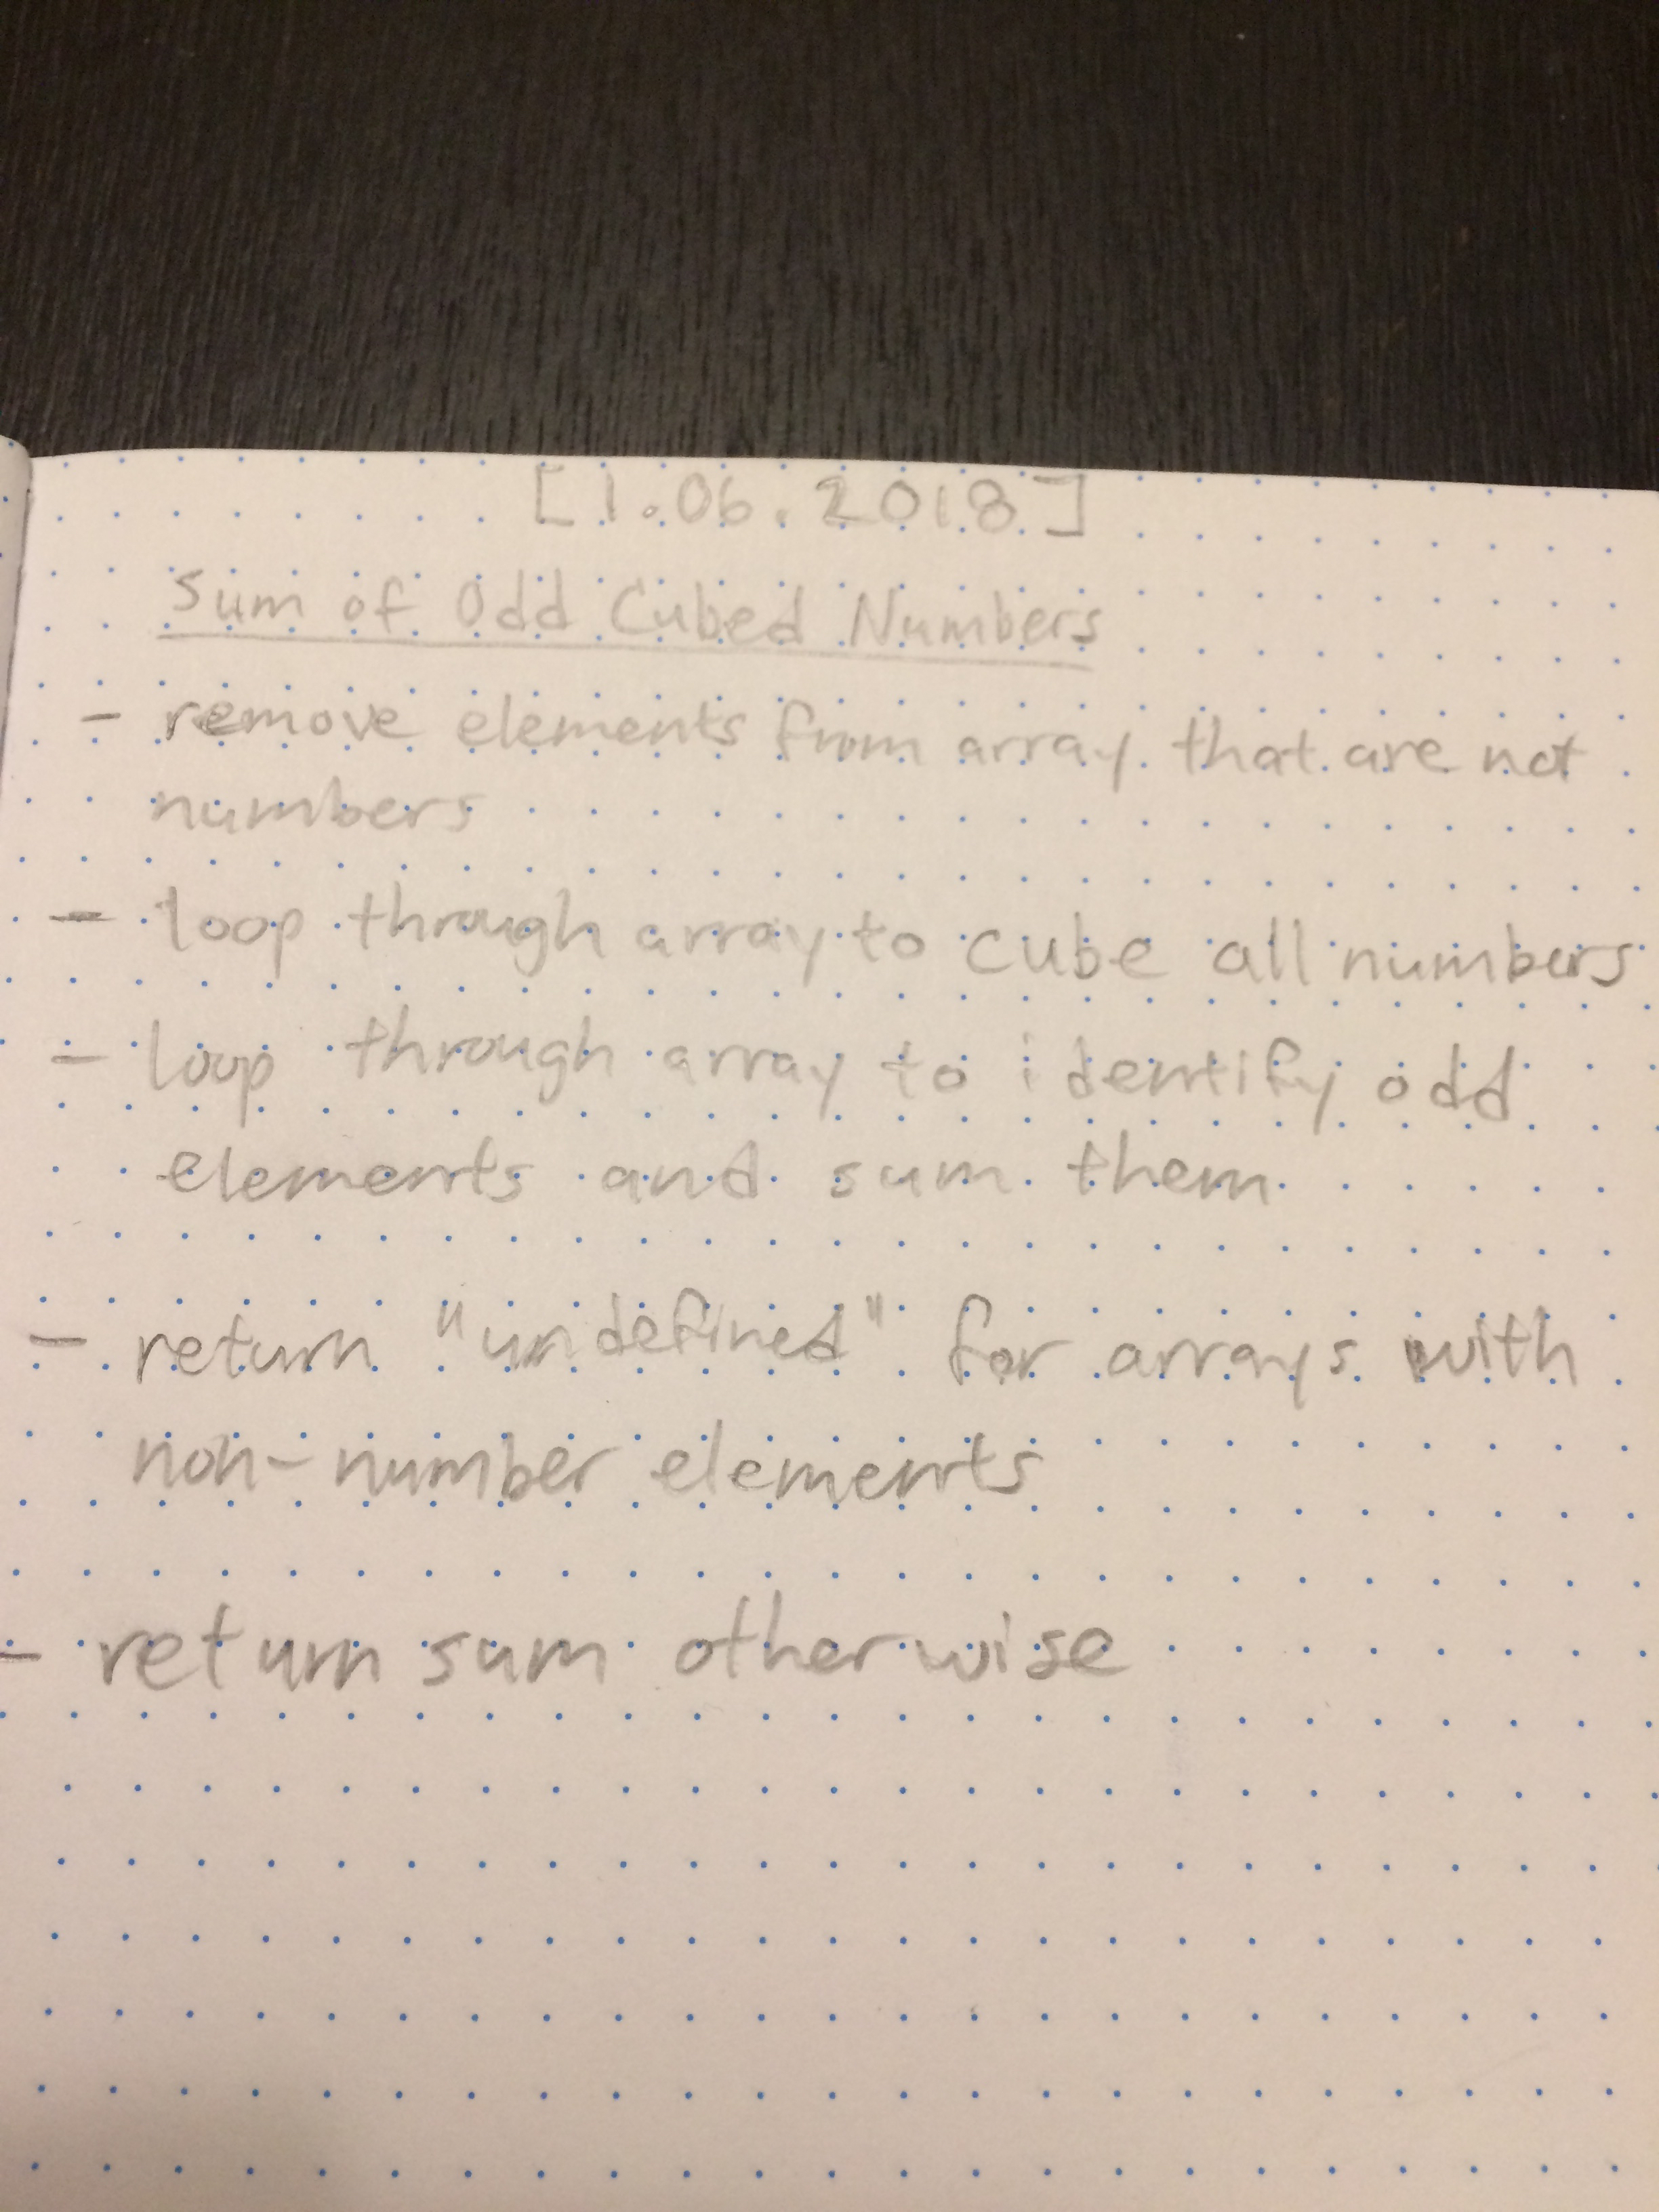 [1.06.2018]
Sum of Odd Cubed Numbers
- remove elements from array that are not
numbers
- loop through array to cube all numbers
- loop through array to identify odd
elements and sum them
- return "undefined" for arrays with
non-number elements
- return sum otherwise